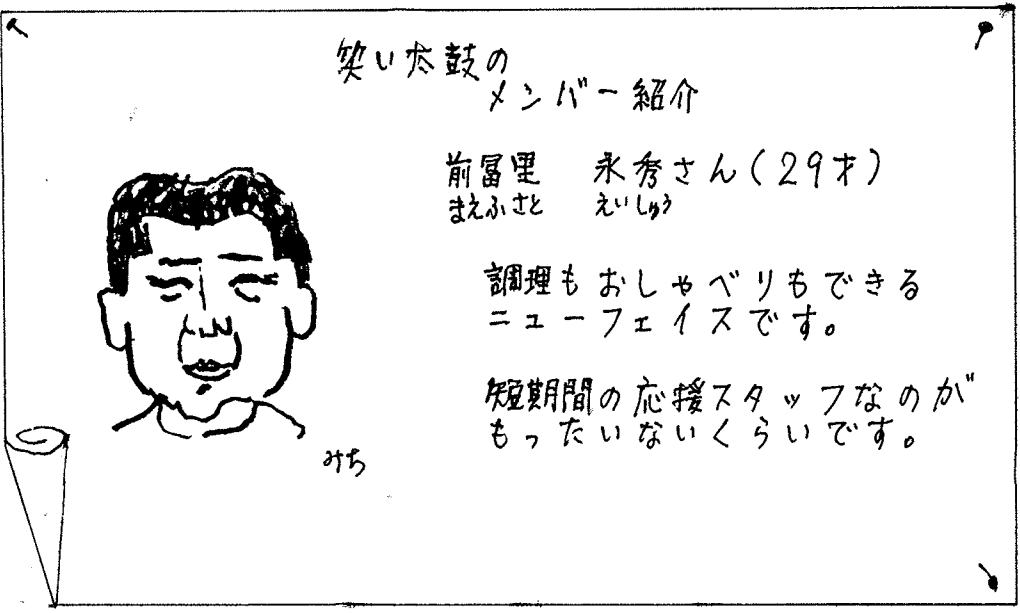 笑い太鼓の
メンバー紹介
前冨里 永秀さん(29才)
まえふさと えいしゅう
調理もおしゃべりもできる
ニューフェイスです。
短期間の応援スタッフなのが
もったいないくらいです。
みち